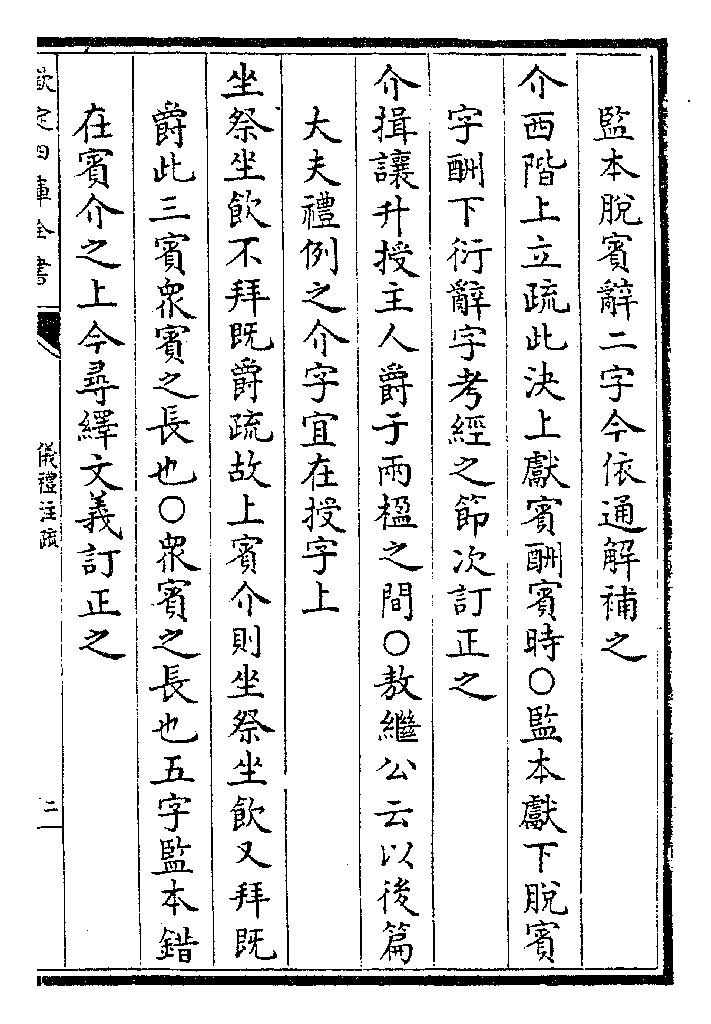 監本脫賓辭二字今依通解補之
介西階上立疏此決上獻賓酬賓時○監本獻下脫賓
字酬下衍辭字考經之節次訂正之
介揖讓升授主人爵于兩楹之間○敖繼公云以後篇
大夫禮例之介字宜在授字上
坐祭坐飲不拜既爵疏故上賓介則坐祭坐飲又拜既
爵此三賓衆賓之長也○衆賓之長也五字監本錯
在賓介之上今尋繹文義訂正之
欽定四庫全書
儀禮注疏
二